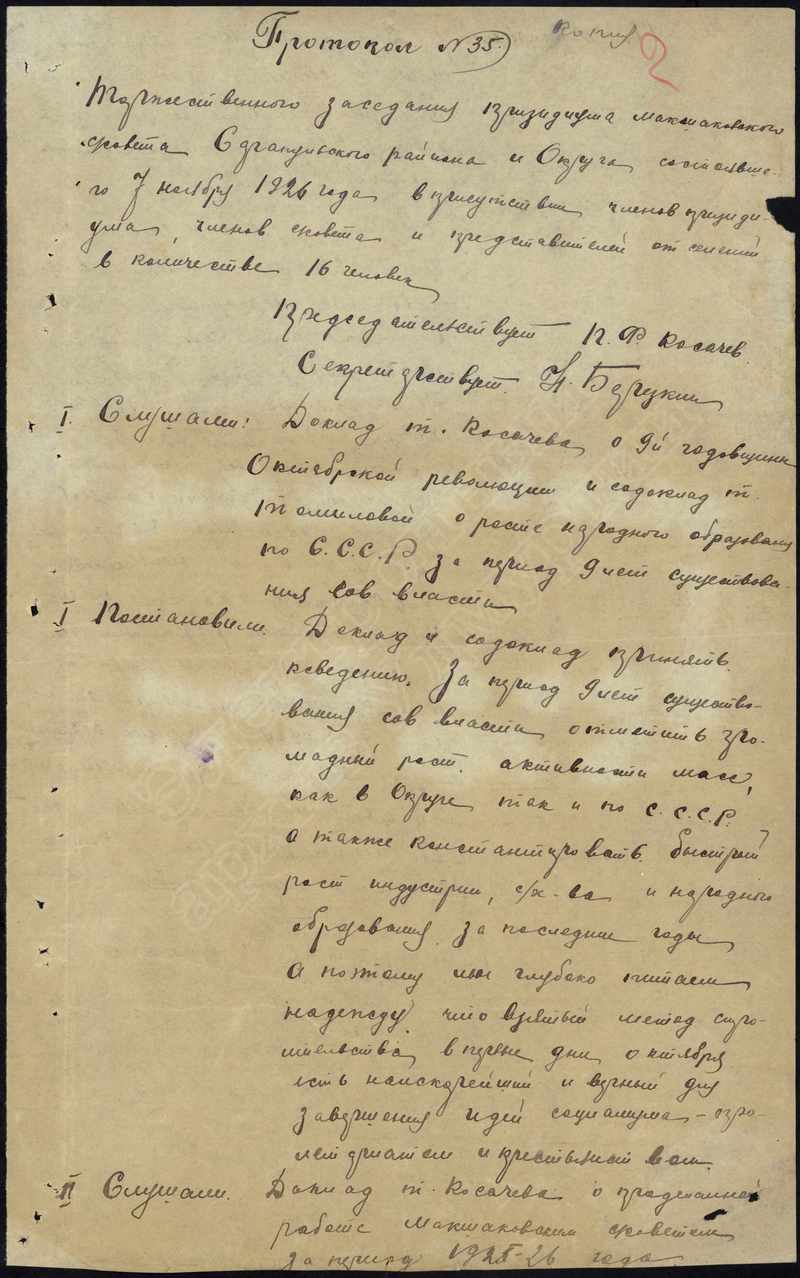 Протокол №35.
копия
2
Торжественного заседания призидиума Маклаковского
совета Сдганцевского района и Округа состоявше-
го 7 ноября 1926 года в присутствии членов призиди-
ума, членов совета и представителей от селений
в количестве 16 человек
Председательствует П. Ф. Косачев.
Секретарствует Н.
I. Слушали: Доклад т. Косачева о 9й годовщине
Октябрской революции и содоклад т.
Томиловой о росте народного образования
по С.С.С.Р. за период 9 лет существова-
ния Сов власти
I Постановили. Доклад и содоклад принять
ксведению. За период 9 лет существо-
вания сов власти отметить гро-
мадный рост активности масс,
как в Округе так и по С.С.С.Р.
а также константировать быстрый
рост индустрии, с/х-ва и народного
образования за последние годы
а поэтому мы глубоко питаем
надежду что взятый метод стро-
ительства в первые дни октября
есть наискорейший и верный для
завершения идей социализма - про-
летариатом и крестьянством
II Слушали. Доклад т. Косачева о проделанной
работе Маклаковским советом
за период 1925-26 года